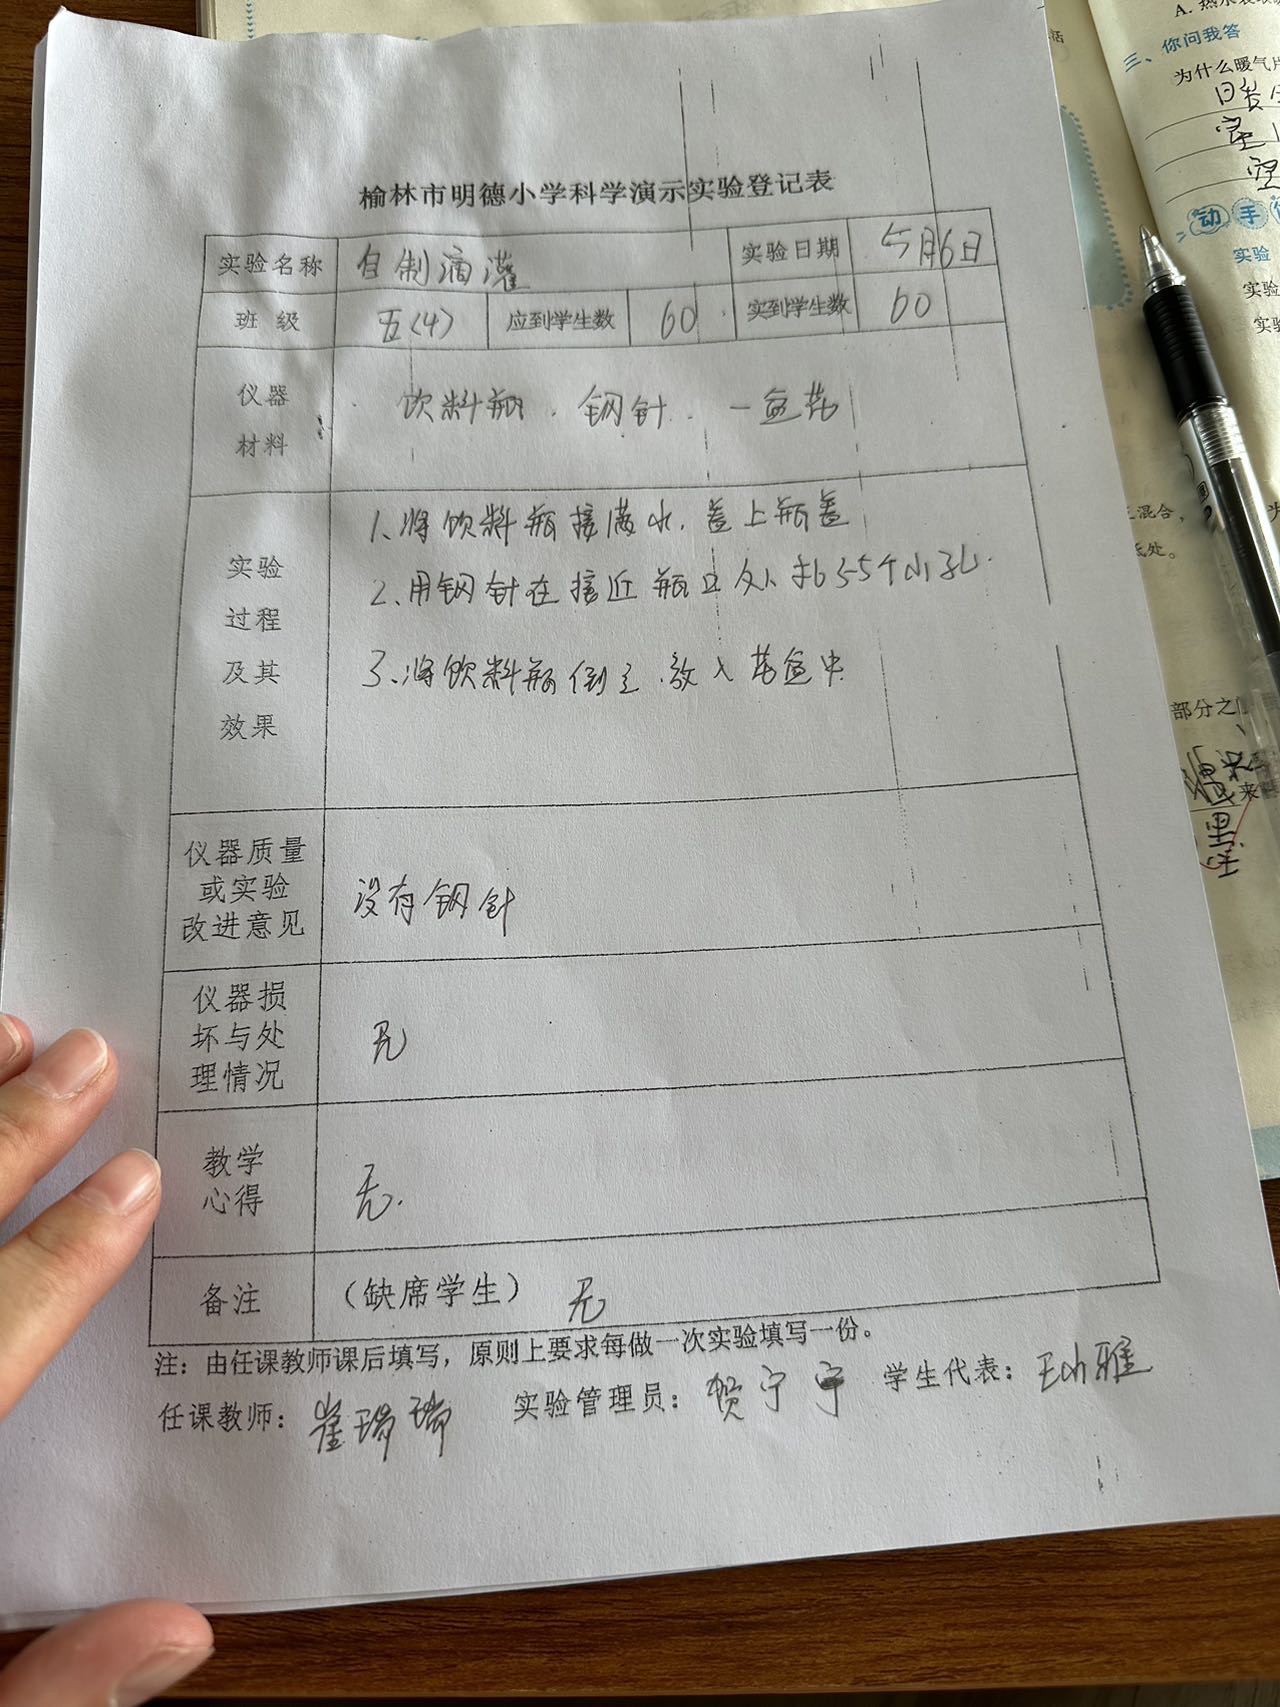 话
A. 热水袋取暖
三、你问我答
为什么暖气片
动手
实验
实验
实验
榆林市明德小学科学演示实验登记表
实验名称 自制滴灌 实验日期 5月6日
班 级 五(4) 应到学生数 60 实到学生数 60
仪器
材料
饮料瓶、钢针、一盆花
实验
过程
及其
效果
1、将饮料瓶接满水,盖上瓶盖
2、用钢针在接近瓶口处,扎3-5个小孔.
3、将饮料瓶倒立,放入花盆中
仪器质量
或实验
改进意见
没有钢针
仪器损
坏与处
理情况
无
教学
心得
无.
备注 (缺席学生) 无
注:由任课教师课后填写,原则上要求每做一次实验填写一份。
任课教师:崔瑞瑞 实验管理员:贺宁宁 学生代表:
混合,
低处。
部分之间
来